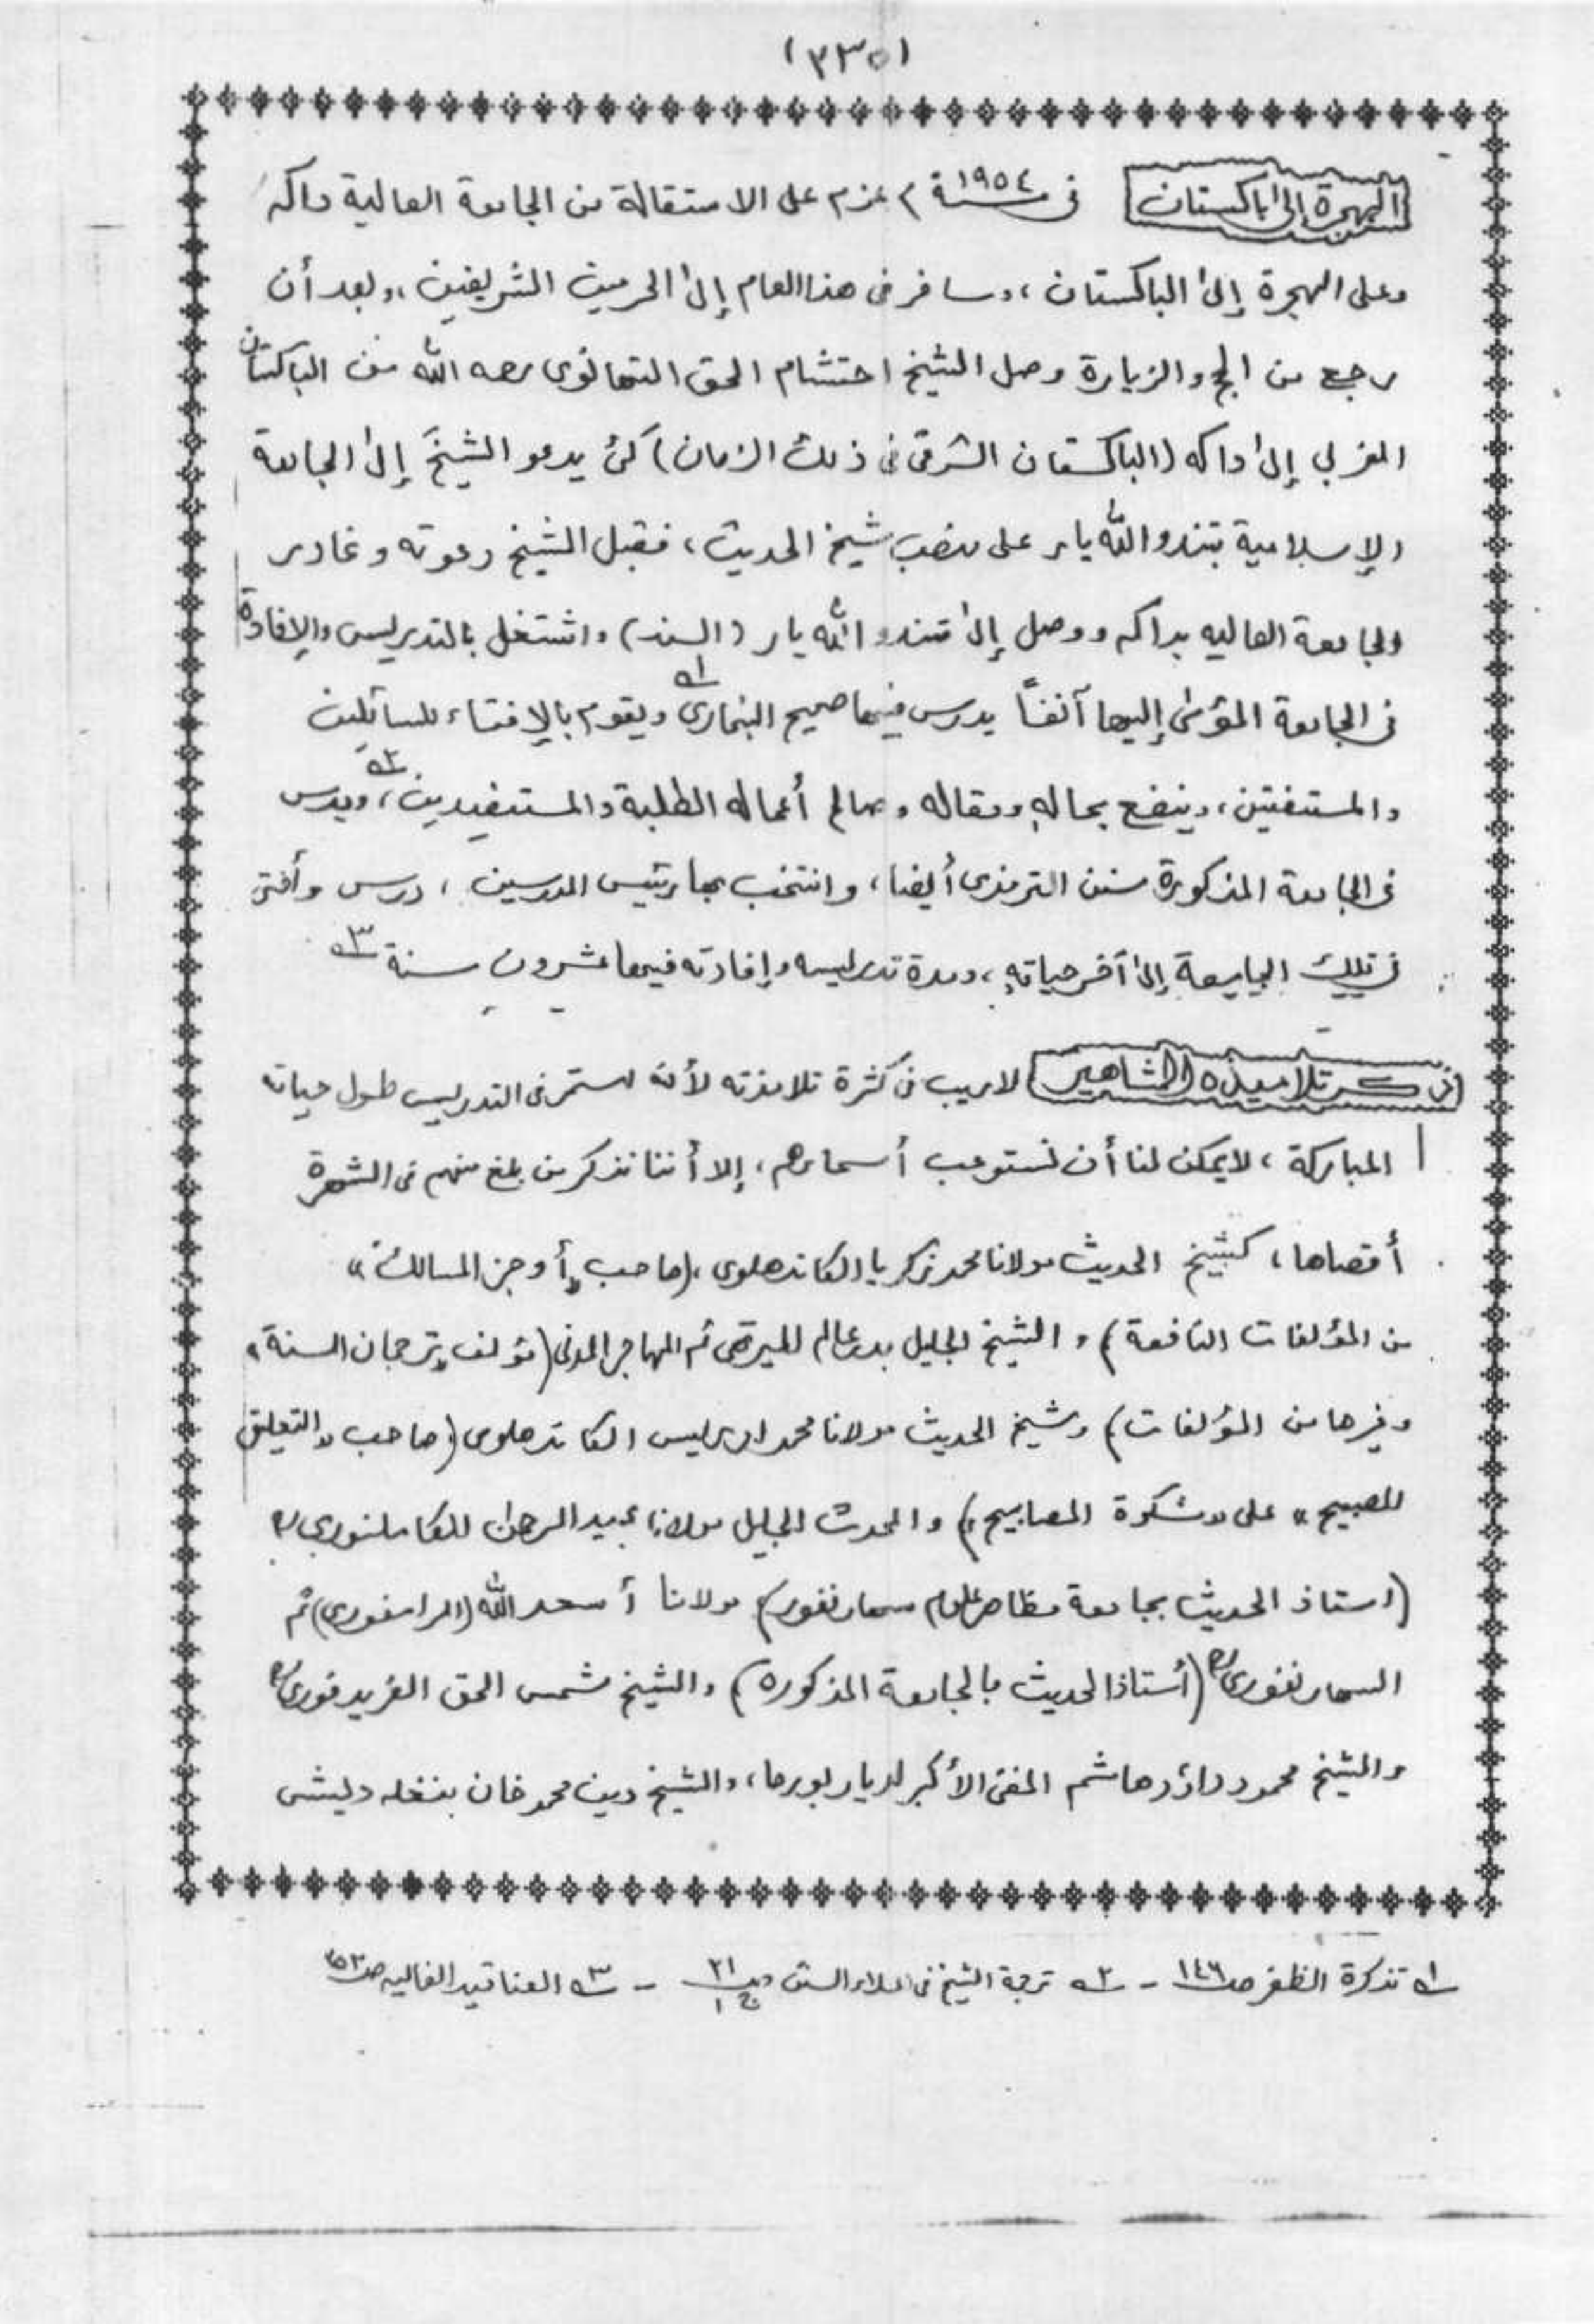 (٣٣٥)
الهجرة إلى باكستان في سنة ١٩٥٤م عزم على الاستقالة من الجامعة العالية داكه
وعلى الهجرة إلى الباكستان، وسافر في هذا العام إلى الحرمين الشريفين، وبعد أن
رجع من الحج والزيارة وصل الشيخ احتشام الحق التهانوى رحمه الله من الباكستان
المغربي إلى داكه (الباكستان الشرقى في ذلك الزمان) كئ يدعو الشيخَ إلى الجامعة
الإسلامية بتندو الله يار على منصب شيخ الحديث، فقبل الشيخ دعوته وغادر
الجامعة العاليه بداكه ووصل إلى تندو الله يار (السند) واشتغل بالتدريس والإفادة
في الجامعة المؤمى إليها آنفاً يدرس فيها صحيح البخارى ١ـه ويقوم بالإفتاء للسائلين
والمستفتين، وينفع بحالهِ ومقاله وصالح أعماله الطلبة والمستفيدين ٢ـه، ويدرس
في الجامعة المذكورة سنن الترمذى أيضا، وانتخب بها رئيس المدرسين، درس وأفتى
في تلك الجامعة إلى آخر حياتهِ، ومدة تدريسه وإفادته فيها عشرون سنة ٣ـه
ذكر تلاميذه المشاهير لاريب في كثرة تلامذته لأنه استمر في التدريس طول حياته
المباركة، لايمكن لنا أن نستوعب أسماءهم، إلا أننا نذكر من بلغ منهم في الشهرة
أقصاها، كشيخ الحديث مولانا محمد زكريا الكاندهلوى، (صاحب «أوجز المسالك»
من المؤلفات النافعة) و الشيخ الجليل بدر عالم الميرتهى ثم المهاجر المدنى (مؤلف «ترجمان السنة»
وغيرها من المؤلفات) وشيخ الحديث مولانا محمد ادريس الكاندهلوى (صاحب «التعليق
الصبيح» على «مشكوة المصابيح») والمحدث الجليل مولانا عبد الرحمن الكاملفوري ؒ
(استاذ الحديث بجامعة مظاهر علوم سهارنفور) مولانا أسعد الله (الرامفورى) ثم
السهارنفورى ؒ (أستاذ الحديث بالجامعة المذكورة) والشيخ شمس الحق الفريدفورى ؒ
والشيخ محمود داؤد هاشم المفتى الأكبر لديار بورما، والشيخ دين محمد خان بنغله ديشى
١ـه تذكرة الظفر صـ ١٤٦ - ٢ـه ترجمة الشيخ في اعلاء السنن صـ ٢١ ج ١ - ٣ـه العناقيد الغاليه صـ ٢٥٣